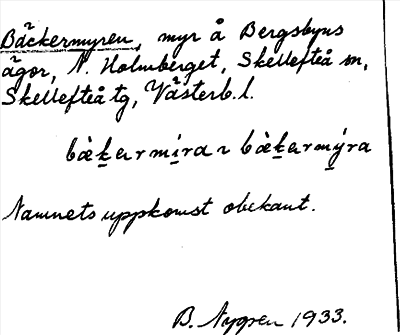 Bäckermyren, myr å Bergsbyns
ägor, N. Holmberget, Skellefteå sn,
Skellefteå tg, Västerb. l.
bàḵermi̱ra ~ bàḵermý̱ra
Namnets uppkomst obekant.
B. Nygren 1933.